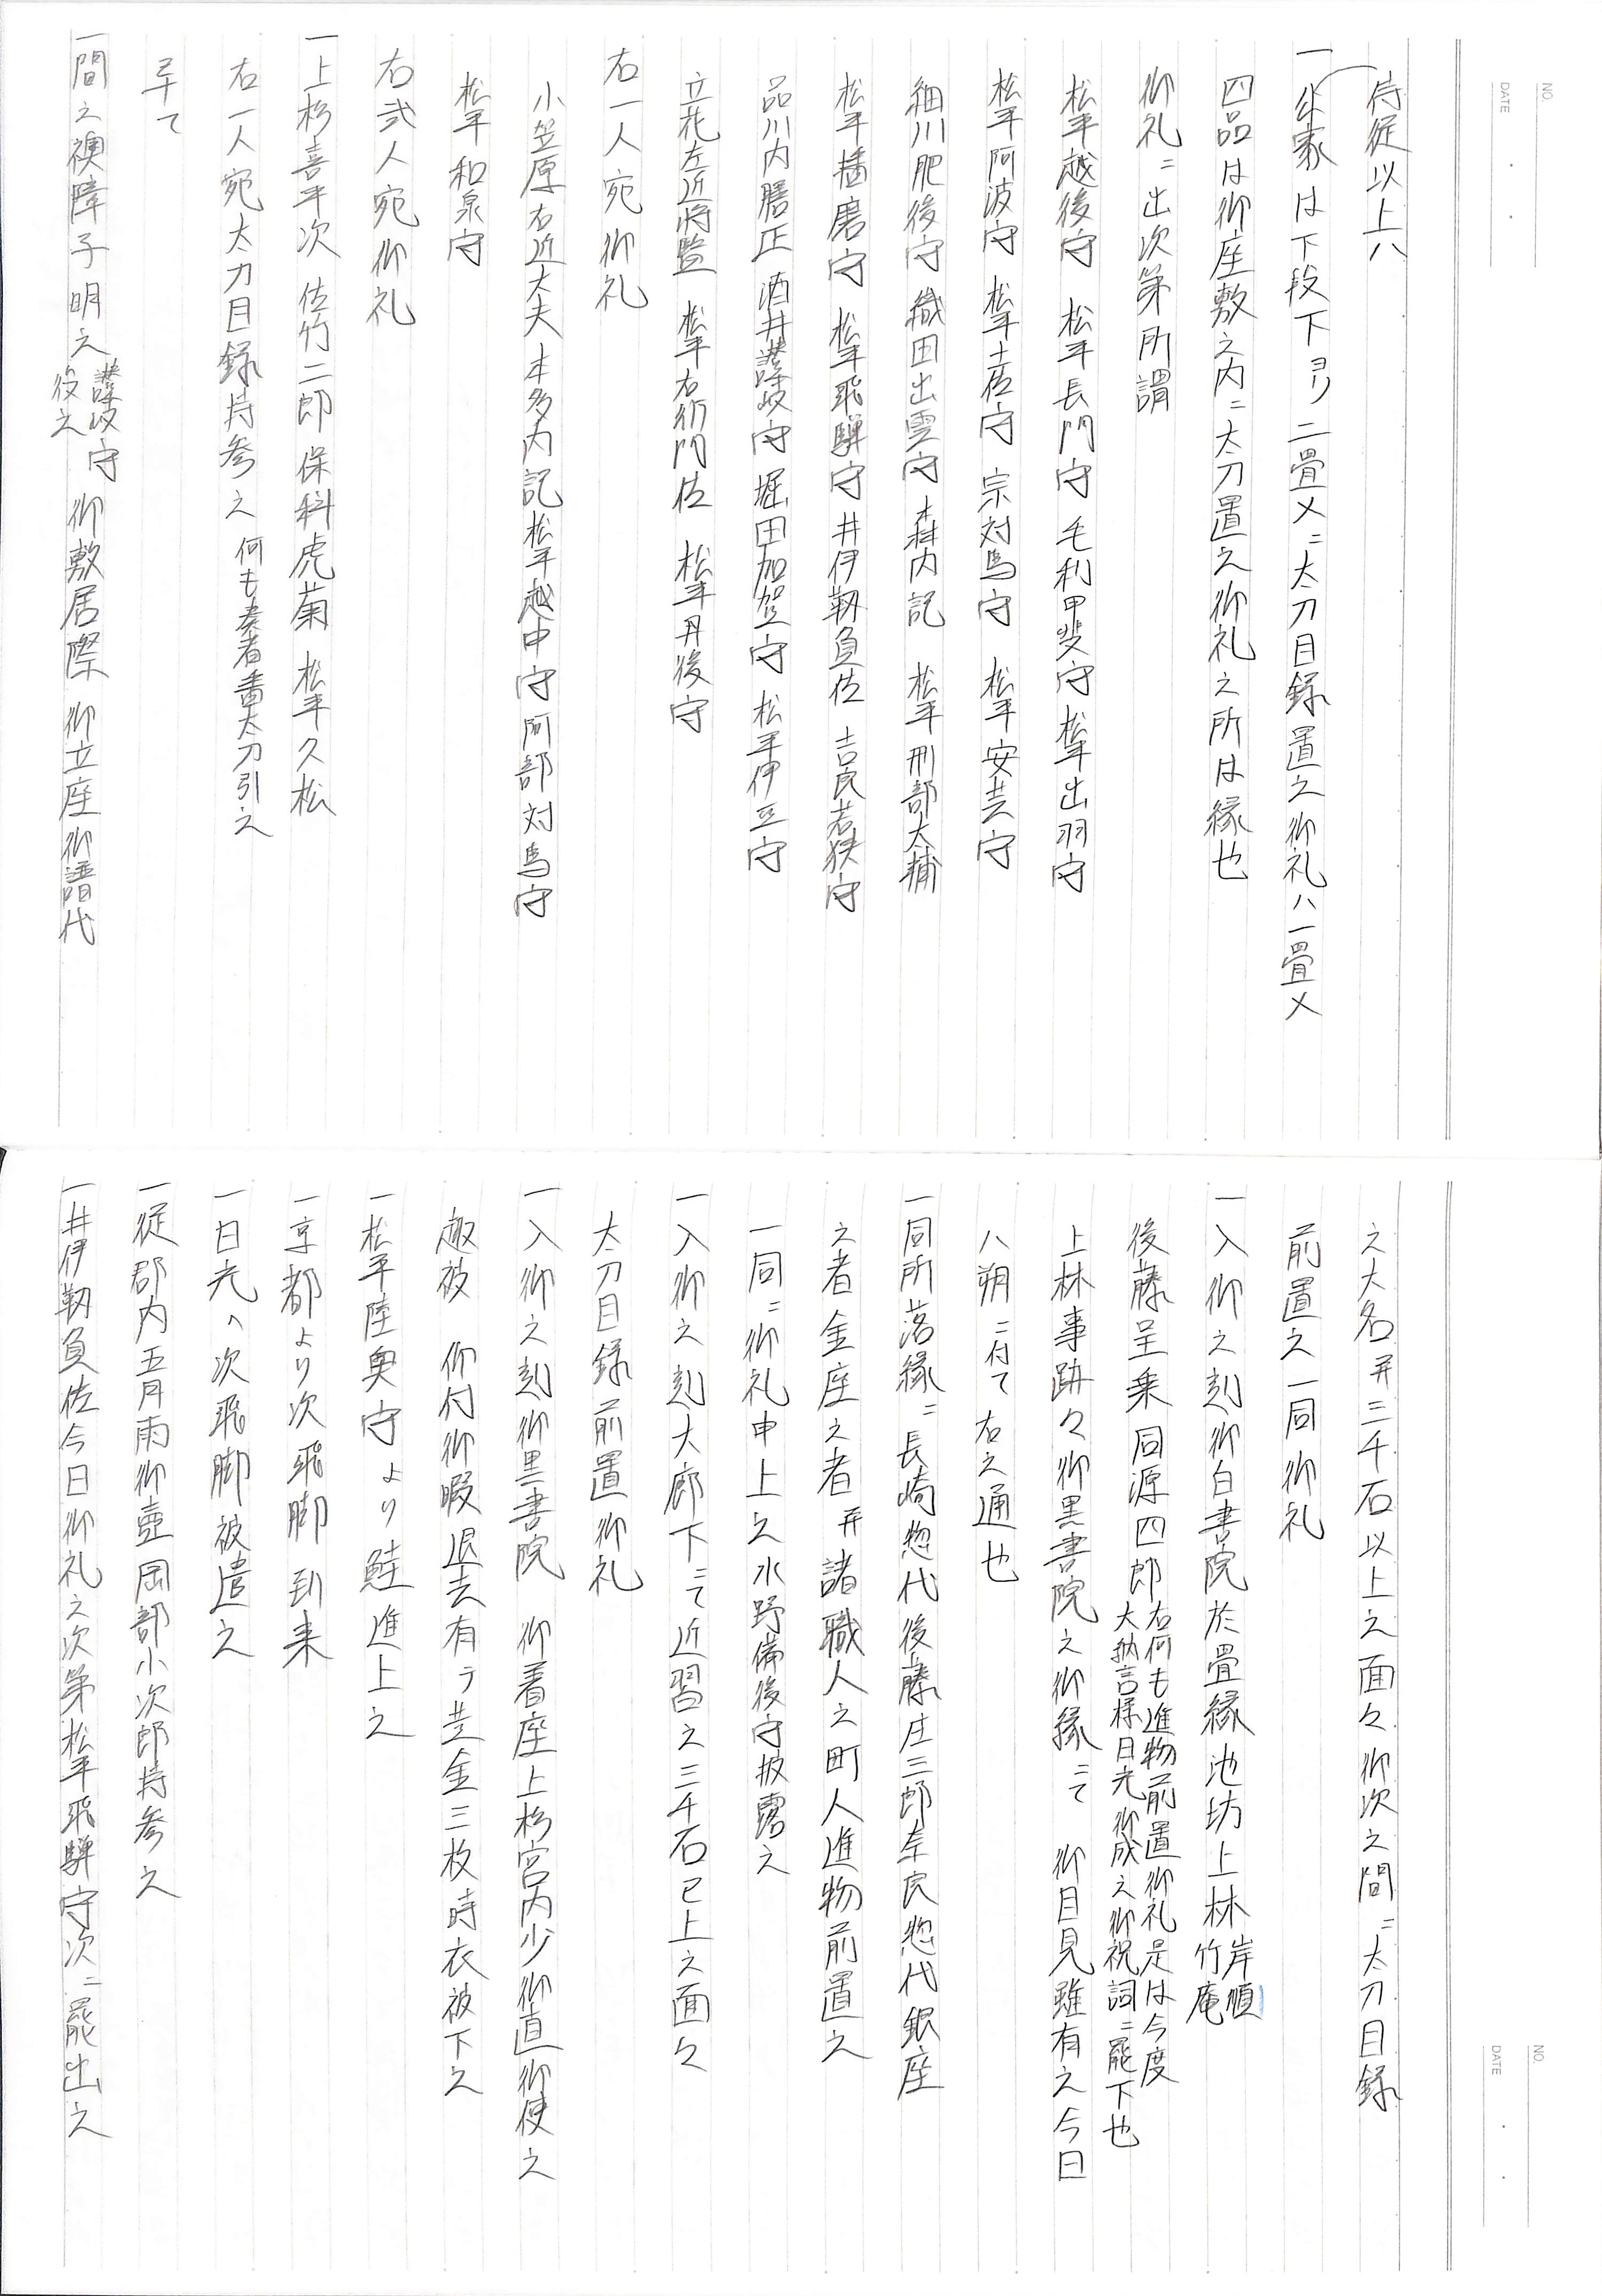 侍従以上ハ
一公家は下段下ヨリ二畳メニ太刀目録置之御礼ハ一畳メ
四品は御座敷之内ニ太刀置之御礼之所は縁也
御礼ニ出次第所謂
松平越後守 松平長門守 毛利甲斐守 松平出羽守
松平阿波守 松平土佐守 宗対馬守 松平安芸守
細川肥後守 織田出雲守 森内記 松平刑部太輔
松平播磨守 松平飛騨守 井伊靱負佐 吉良若狭守
品川内膳正 酒井讃岐守 堀田加賀守 松平伊豆守
立花左近将監 松平右衛門佐 松平丹後守
右一人宛御礼
小笠原右近大夫 本多内記 松平越中守 阿部対馬守
松平和泉守
右弐人宛御礼
一上杉喜平次 佐竹二郎 保科虎菊 松平久松
右一人宛太刀目録持参之 何も奏者番太刀引之
畢て
一間之襖障子明之 讃岐守役之 御敷居際 御立座御譜代
之大名并三千石以上之面々御次之間ニ太刀目録
前置之一同御礼
一入御之刻御白書院於畳縁池坊上林 岸順 竹庵
後藤呈乗 同源四郎 右何も進物前置御礼是は今度 大納言様日光御成之御祝詞ニ罷下也
上林事跡々御黒書院之御縁ニて 御目見雖有之今日
八朔ニ付て右之通也
一同所落縁ニ長崎惣代後藤庄三郎奈良惣代銀座
之者金座之者并諸職人之町人進物前置之
一同ニ御礼申上之水野備後守披露之
一入御之刻大廊下ニて近習之三千石已上之面々
太刀目録前置御礼
一入御之刻御黒書院 御着座上杉宮内少御直御使之
趣被 仰付御暇退去有テ芝金三枚時衣被下之
一松平陸奥守より鮭進上之
一京都より次飛脚到来
一日光へ次飛脚被遣之
一従郡内五月雨御壷岡部小次郎持参之
一井伊靱負佐今日御礼之次第松平飛騨守次ニ罷出之
NO.
DATE
NO.
DATE